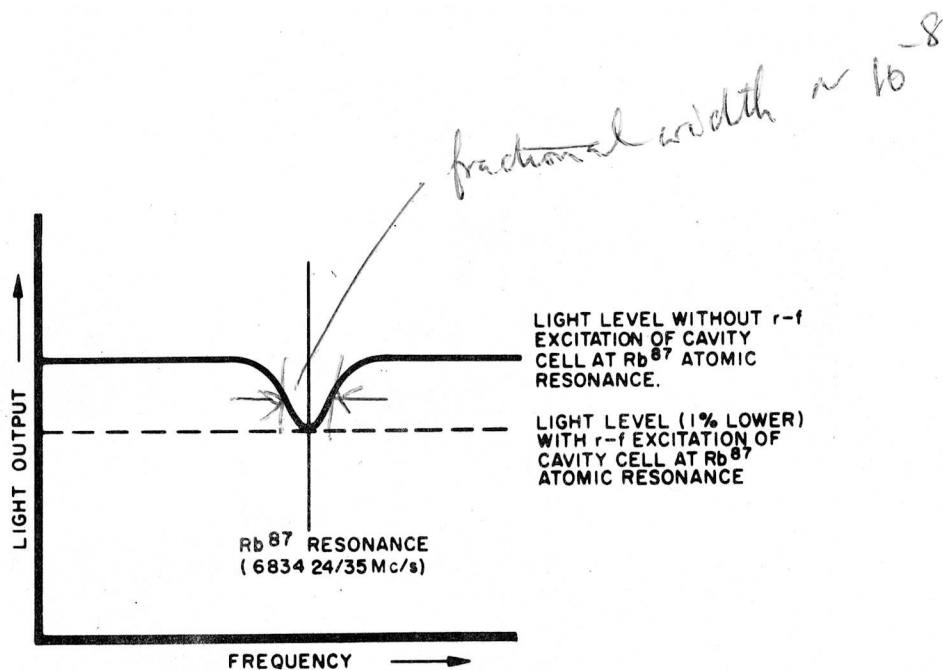 fractional width ~ 10⁻⁸
LIGHT LEVEL WITHOUT r-f
EXCITATION OF CAVITY
CELL AT Rb⁸⁷ ATOMIC
RESONANCE.
LIGHT LEVEL (1% LOWER)
WITH r-f EXCITATION OF
CAVITY CELL AT Rb⁸⁷
ATOMIC RESONANCE
LIGHT OUTPUT
Rb⁸⁷ RESONANCE
(6834 24/35 Mc/s)
FREQUENCY